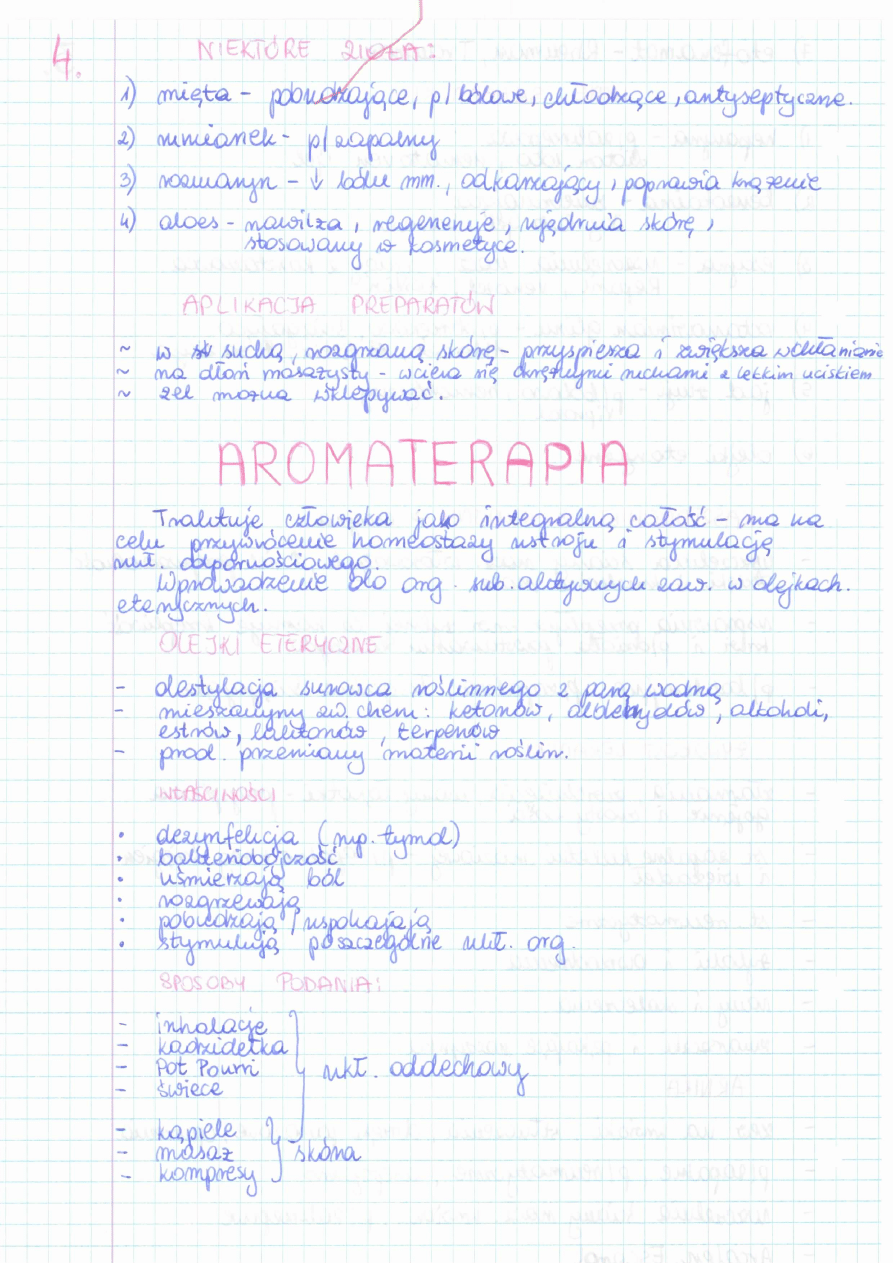 4.
NIEKTÓRE ZIOŁA:
1) mięta - pobudzające, p/bólowe, chłodzące, antyseptyczne.
2) rumianek - p/zapalny
3) rozmaryn - ↓ bólu mm., odkażający, poprawia krążenie
4) aloes - nawilża, regeneruje, ujędrnia skórę,
stosowany w kosmetyce.
APLIKACJA PREPARATÓW
~ w suchą, rozgrzaną skórę - przyspiesza i zwiększa wchłanianie
~ na dłoń masażysty - wciera się okrężnymi ruchami z lekkim uciskiem
~ żel można wklepywać.
AROMATERAPIA
Traktuje człowieka jako integralną całość - ma na
celu przywrócenie homeostazy ustroju i stymulację
ukł. odpornościowego.
Wprowadzenie do org. sub. aktywnych zaw. w olejkach.
eterycznych.
OLEJKI ETERYCZNE
- destylacja surowca roślinnego z parą wodną
- mieszaniny zw. chem: ketonów, aldehydów, alkoholi,
estrów, laktonów, terpenów
- prod. przemiany materii roślin.
WŁAŚCIWOŚCI
• dezynfekcja (np. tymol)
• bakteriobójczość
• uśmierzają ból
• rozgrzewają
• pobudzają / uspokajają
• stymulują poszczególne ukł. org.
SPOSOBY PODANIA:
- inhalacje
- kadzidełka
- Pot Pourri ukł. oddechowy
- świece
- kąpiele
- masaż skóra
- kompresy